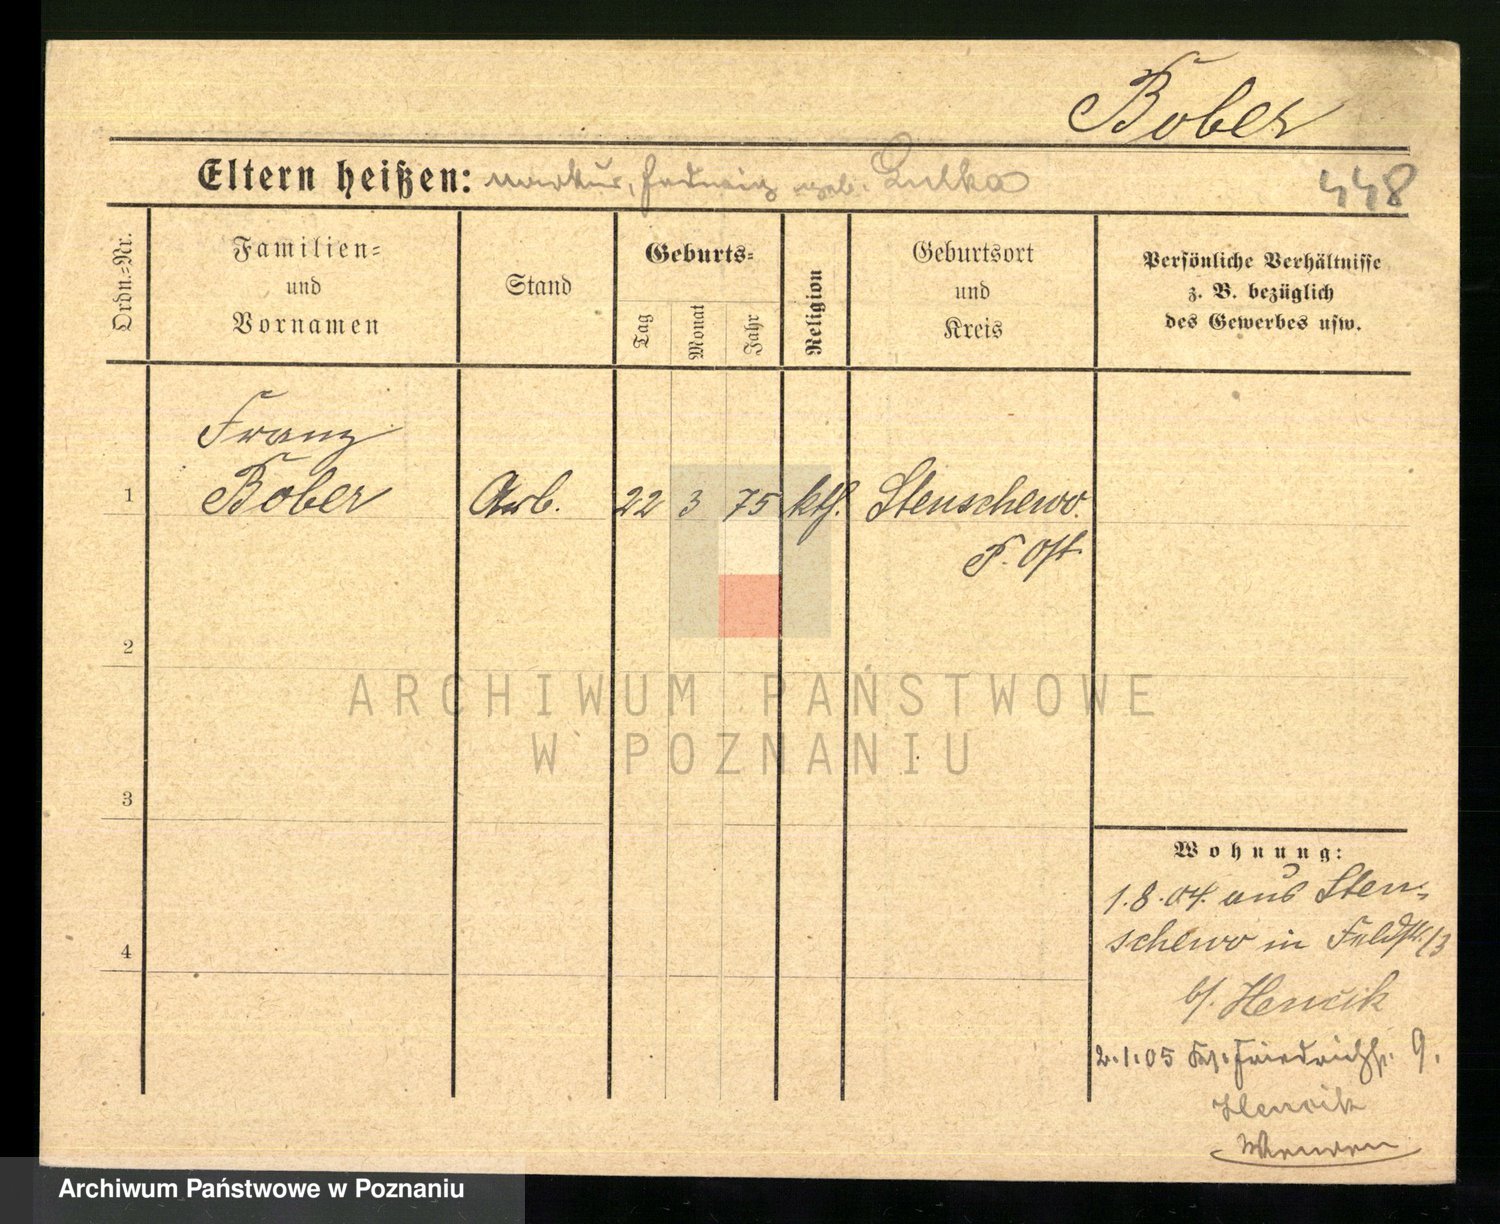 Bober
Eltern heißen: Markus, Hedwig geb.
448
Ordn.=Nr.
Familien=
und
Vornamen
Stand
Geburts=
Tag
Monat
Jahr
Religion
Geburtsort
und
Kreis
Persönliche Verhältnisse
z. B. bezüglich
des Gewerbes usw.
Franz
1 Bober Arb. 22 3 75 kth. Stenschewo
P. Ost
2
3
4
ARCHIWUM PAŃSTWOWE
W POZNANIU
Wohnung:
1.8.04. aus Sten=
schewo in Feldstr. 13
b/. Hencik
2.1.05 Friedrichstr. 9.
Hencik
Archiwum Państwowe w Poznaniu